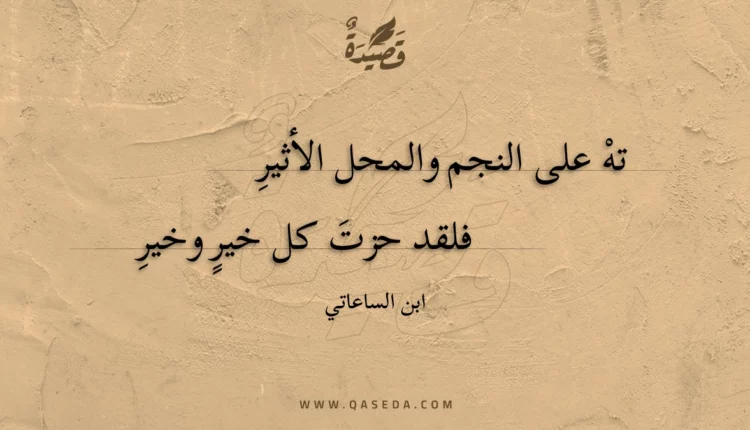 قَصِيْدَةٌ
تهْ على النجم والمحل الأثيرِ
فلقد حزتَ كل خيرٍ وخيرِ
ابن الساعاتي
WWW.QASEDA.COM